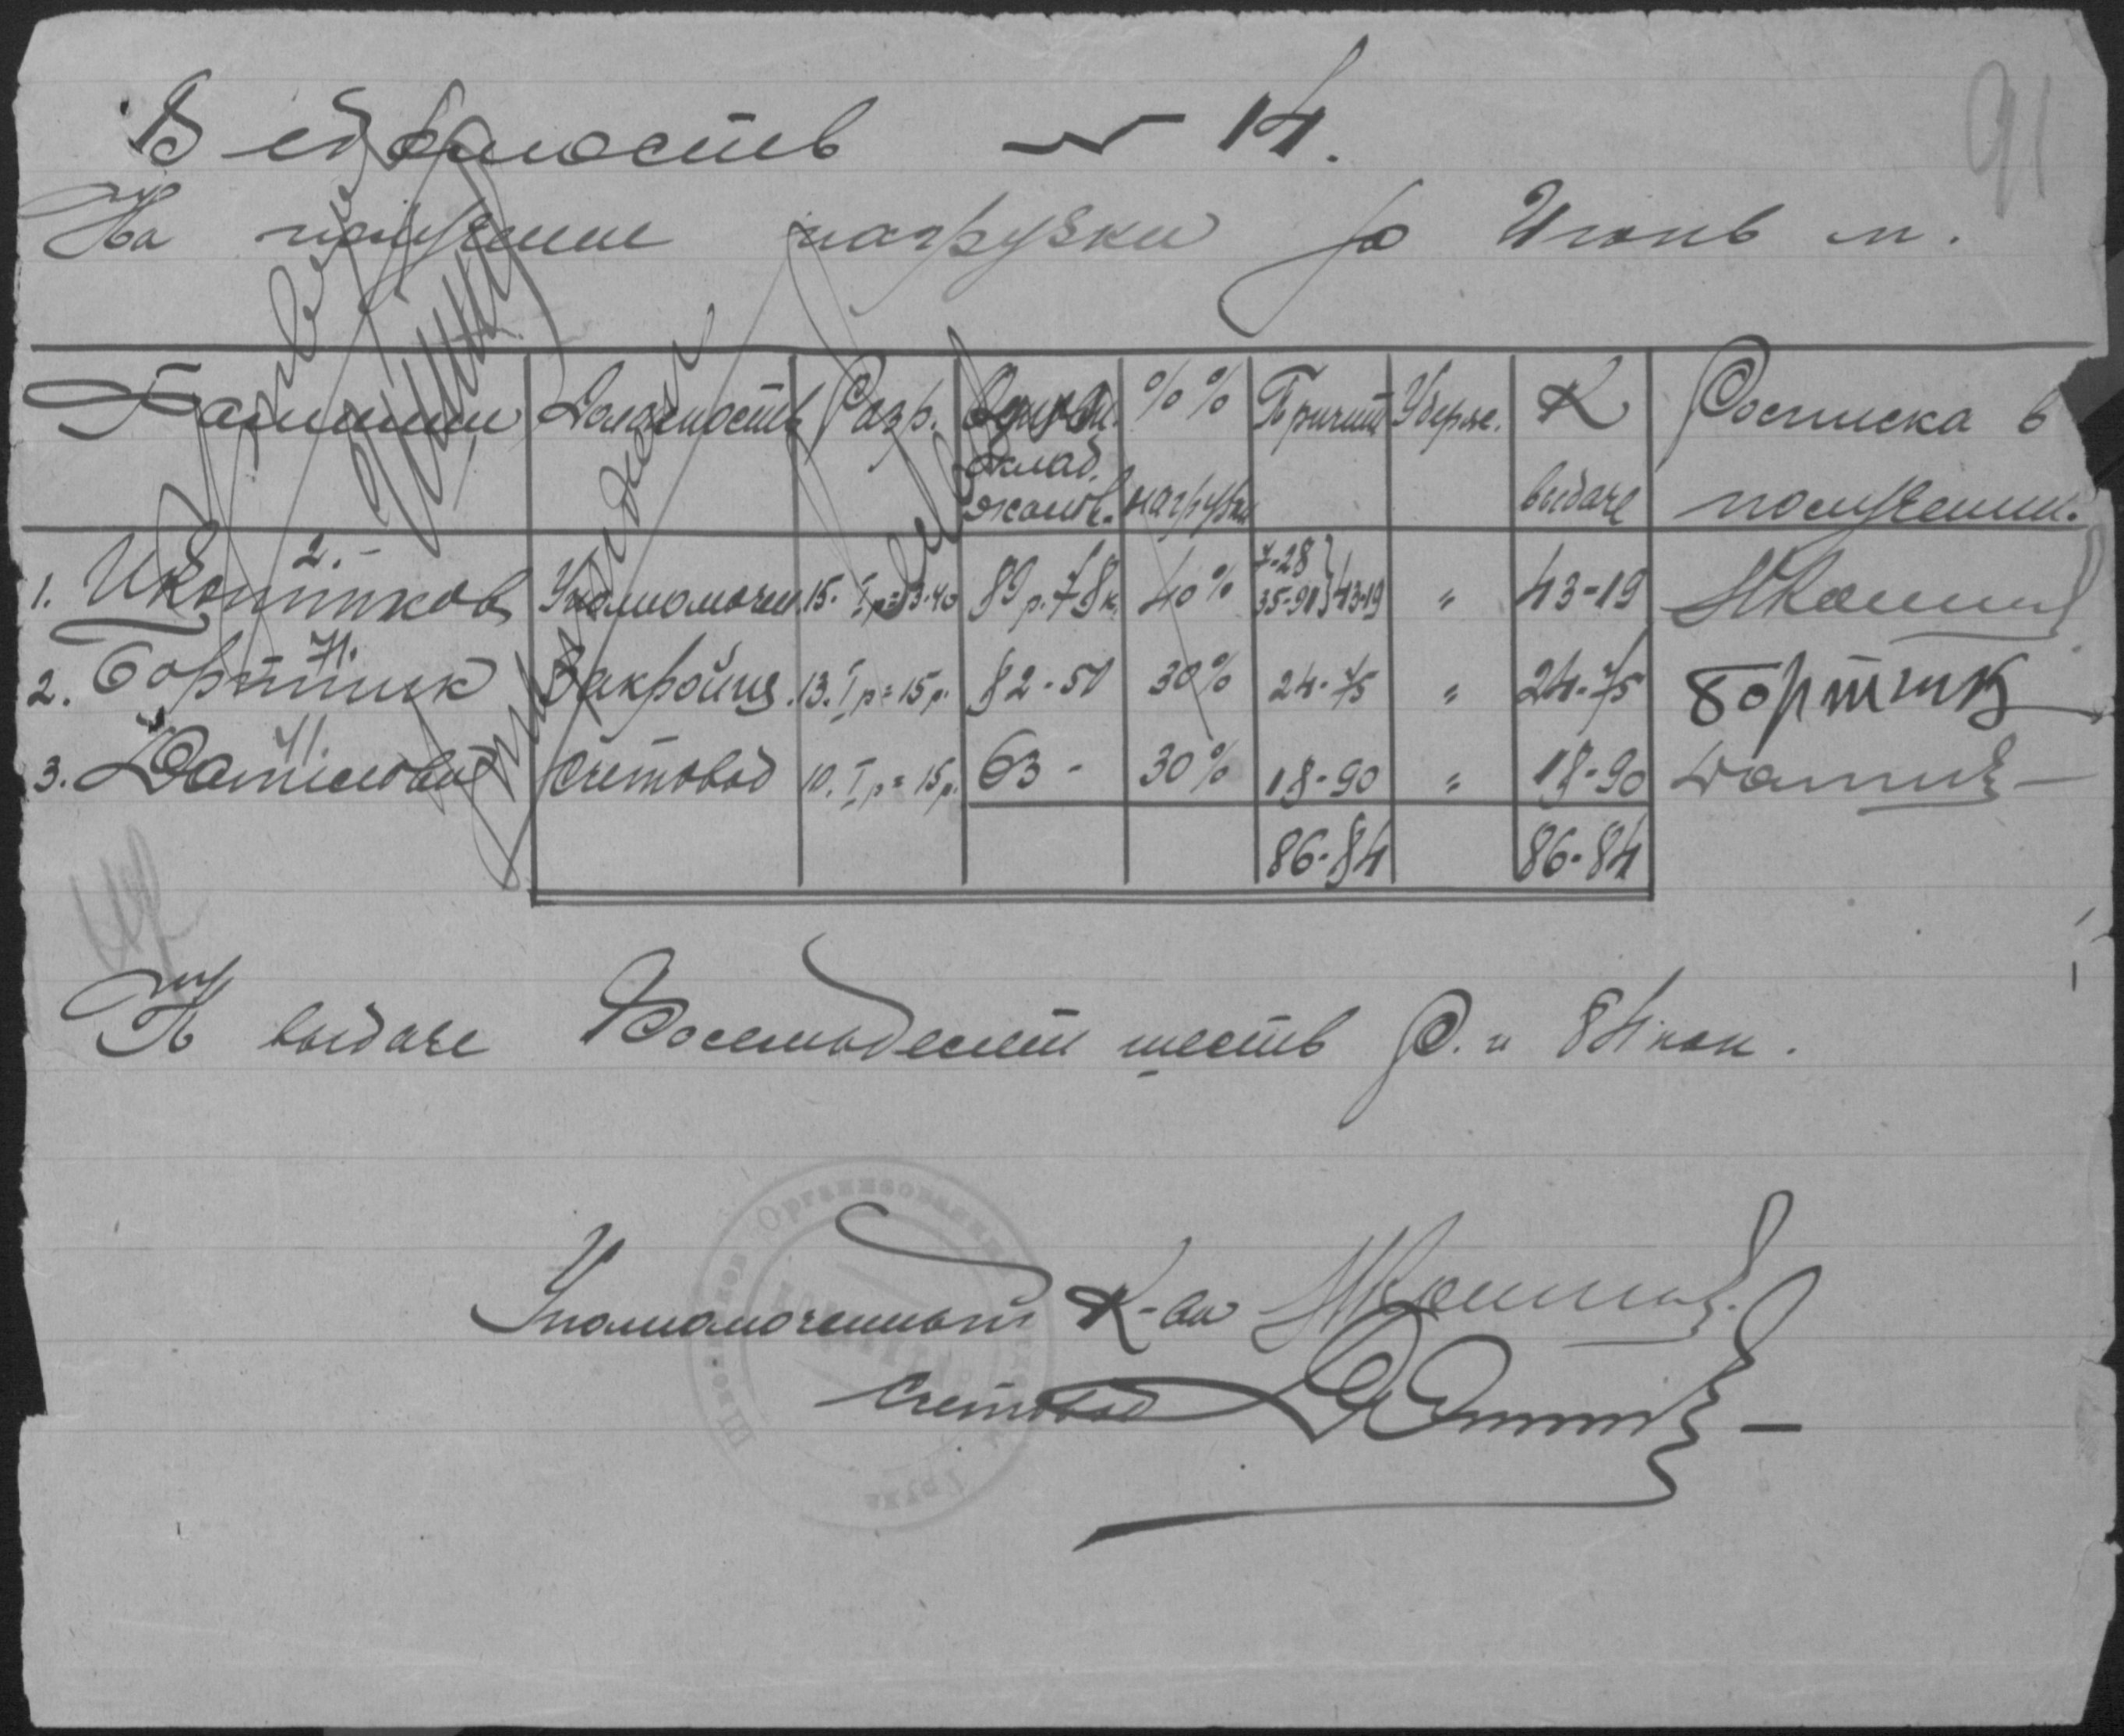 91
Ведомость № 14.
На получение нагрузки за Июнь м.
Фамилии Должность Разр. Основн. оклад. жалов. %% нагрузки Причит. Удерж. К выдаче Росписка в получении.
1. Икотников Уполномочен 15. I р=13.40 89 р. 78 к. 40% 7-28 35-91 } 43-19 " 43-19
2. Бортник Закройщ. 13. I р=15 р. 82-50 30% 24-75 " 24-75 Бортник
3. Данилович Счетовод 10. I р=15 р. 63 - 30% 18-90 " 18-90
86-84 86-84
К выдаче Восемьдесят шесть р. и 84 коп.
Уполномоченный К-ва
Счетовод
Организованный
Группа